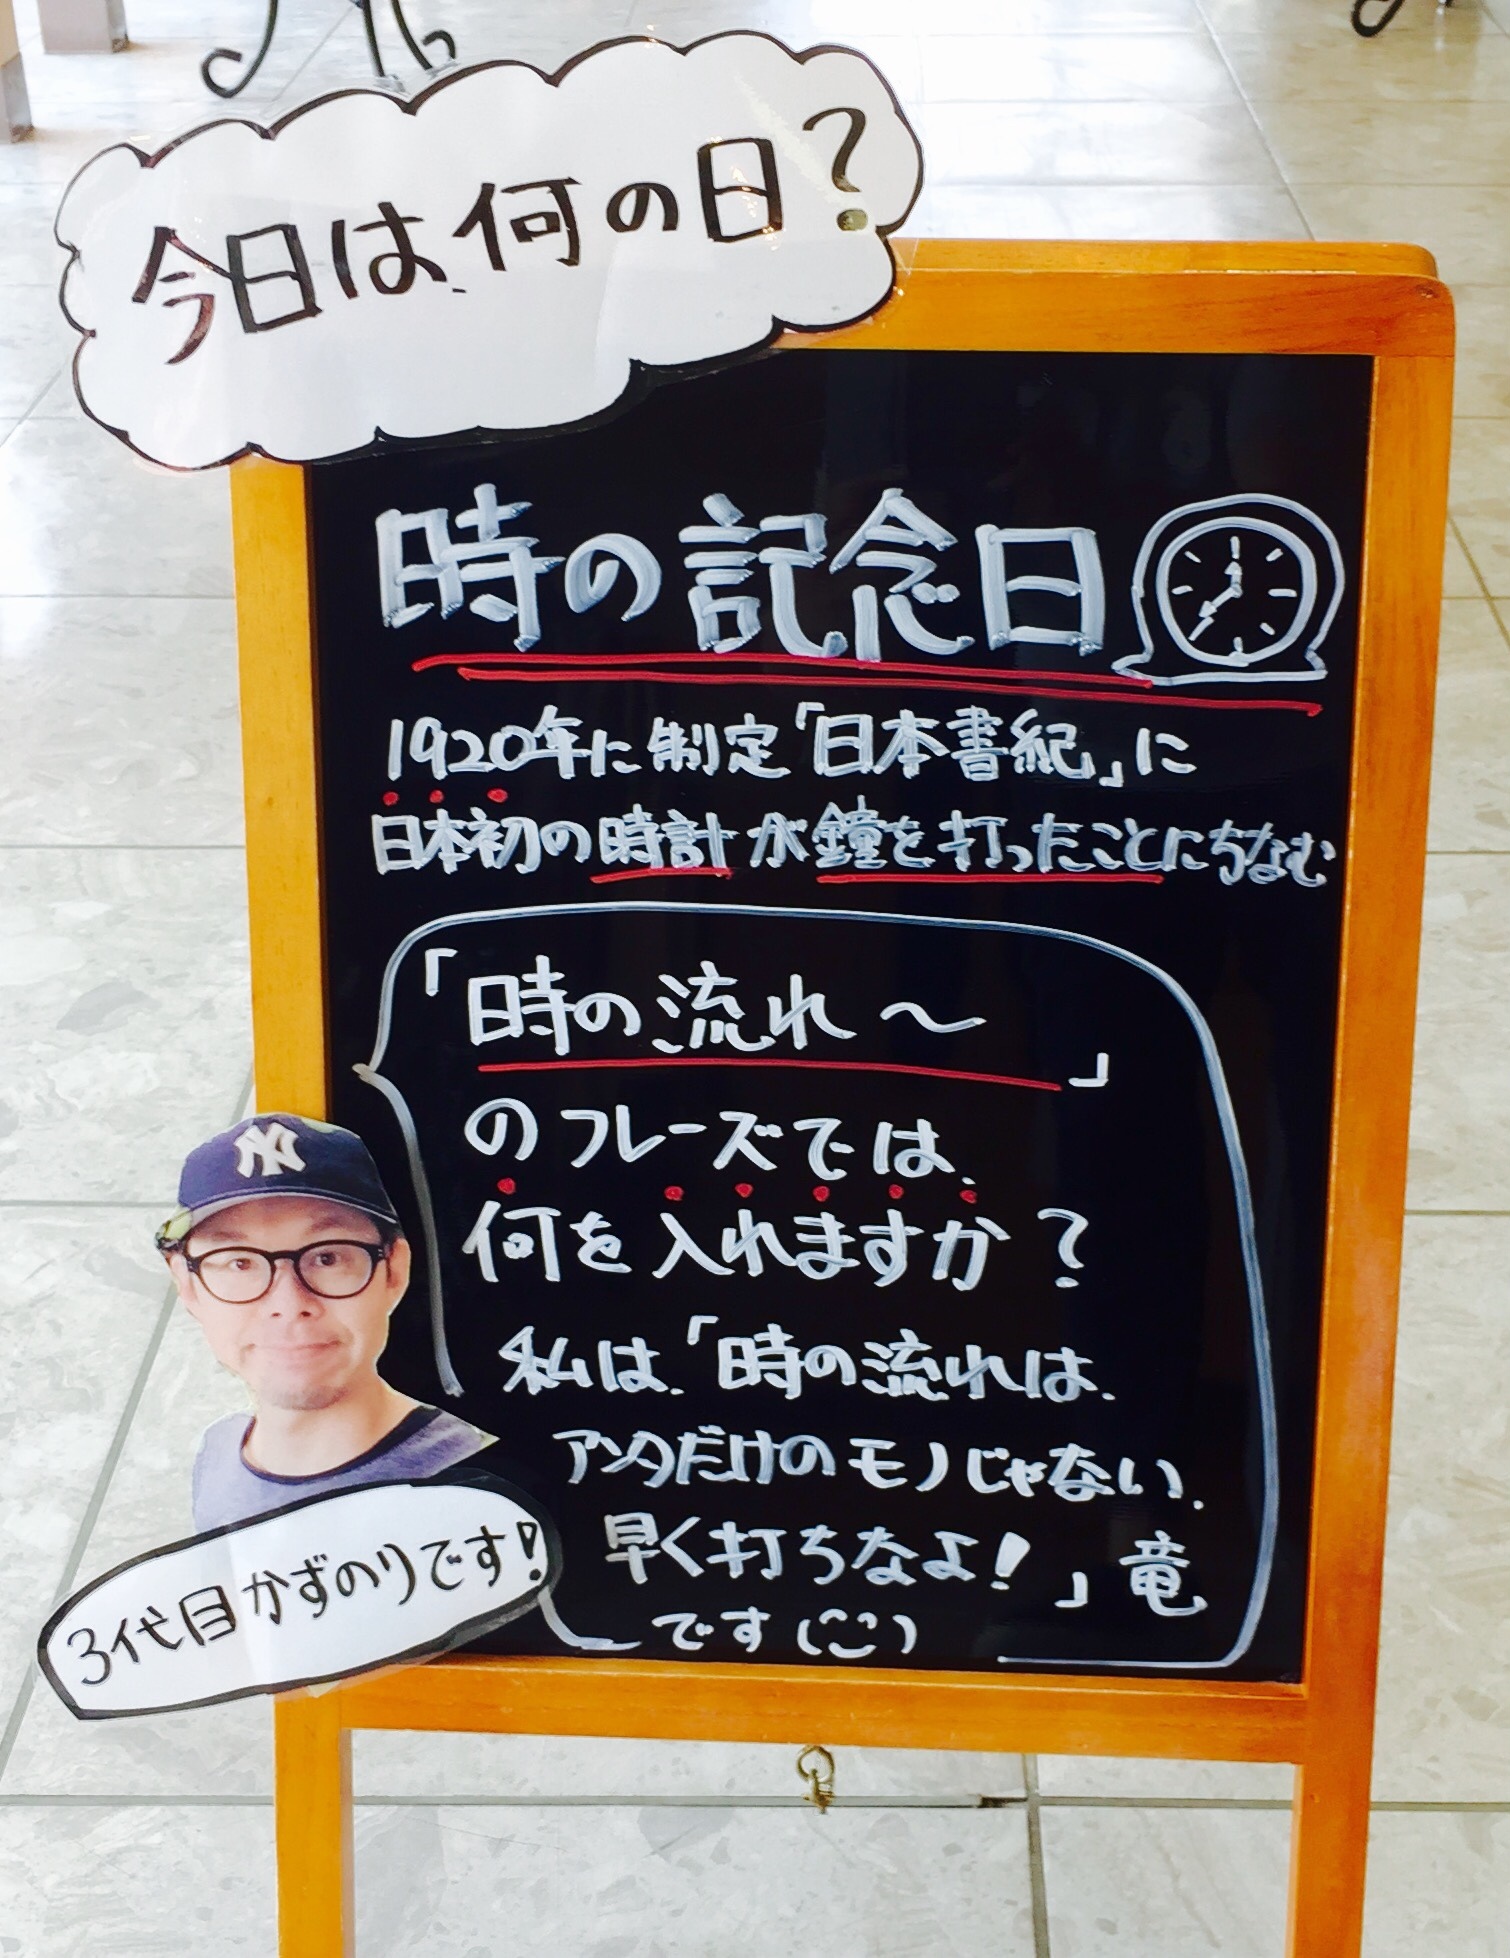 今日は何の日?
時の記念日
1920年に制定「日本書紀」に
日本初の時計が鐘を打ったことにちなむ
「時の流れ〜
」
のフレーズでは、
何を入れますか?
私は、「時の流れは、
アンタだけのモノじゃない、
早く打ちなよ!」竜
です(^^)
NY
3代目かずのりです!